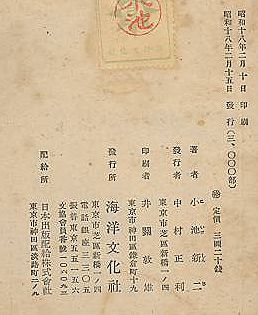 小池
昭和十八年二月十日 印刷
昭和十八年二月十五日 發行(三、〇〇〇部)
定價 三圓二十錢
著者 小池新二
東京市芝區新橋一ノ四
發行者 中村正利
東京市神田區錦倉町十九
印刷者 井關敦雄
發行所 海洋文化社
東京市芝區新橋一ノ四
電話銀座二三〇五
振替東京五五一五六
文協會員番號一〇二〇九三
配給所 日本出版配給株式會社
東京市神田區淡路町二ノ九